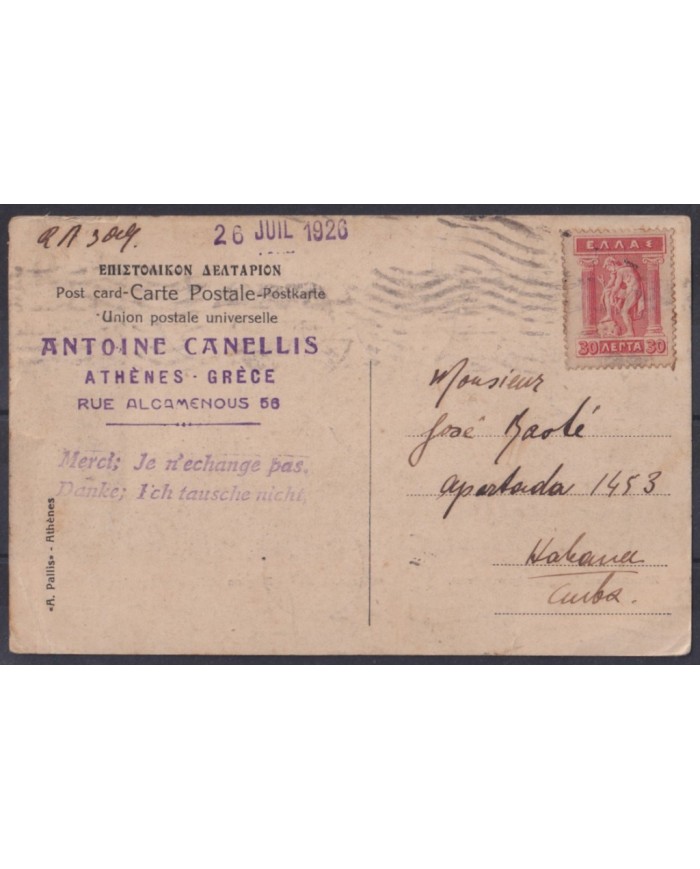 26 JUIL 1926
ΕΠΙΣΤΟΛΙΚΟΝ ΔΕΛΤΑΡΙΟΝ
Post card-Carte Postale-Postkarte
Union postale universelle
ANTOINE CANELLIS
ATHÈNES - GRÈCE
RUE ALCAMENOUS 56
Merci; Je n'echange pas.
Danke; Ich tausche nicht.
«A. Pallis» - Athènes
ΕΛΛΑΣ
30 ΛΕΠΤΑ 30
Monsieur
José
Apartado 1453
Habana
Cuba.